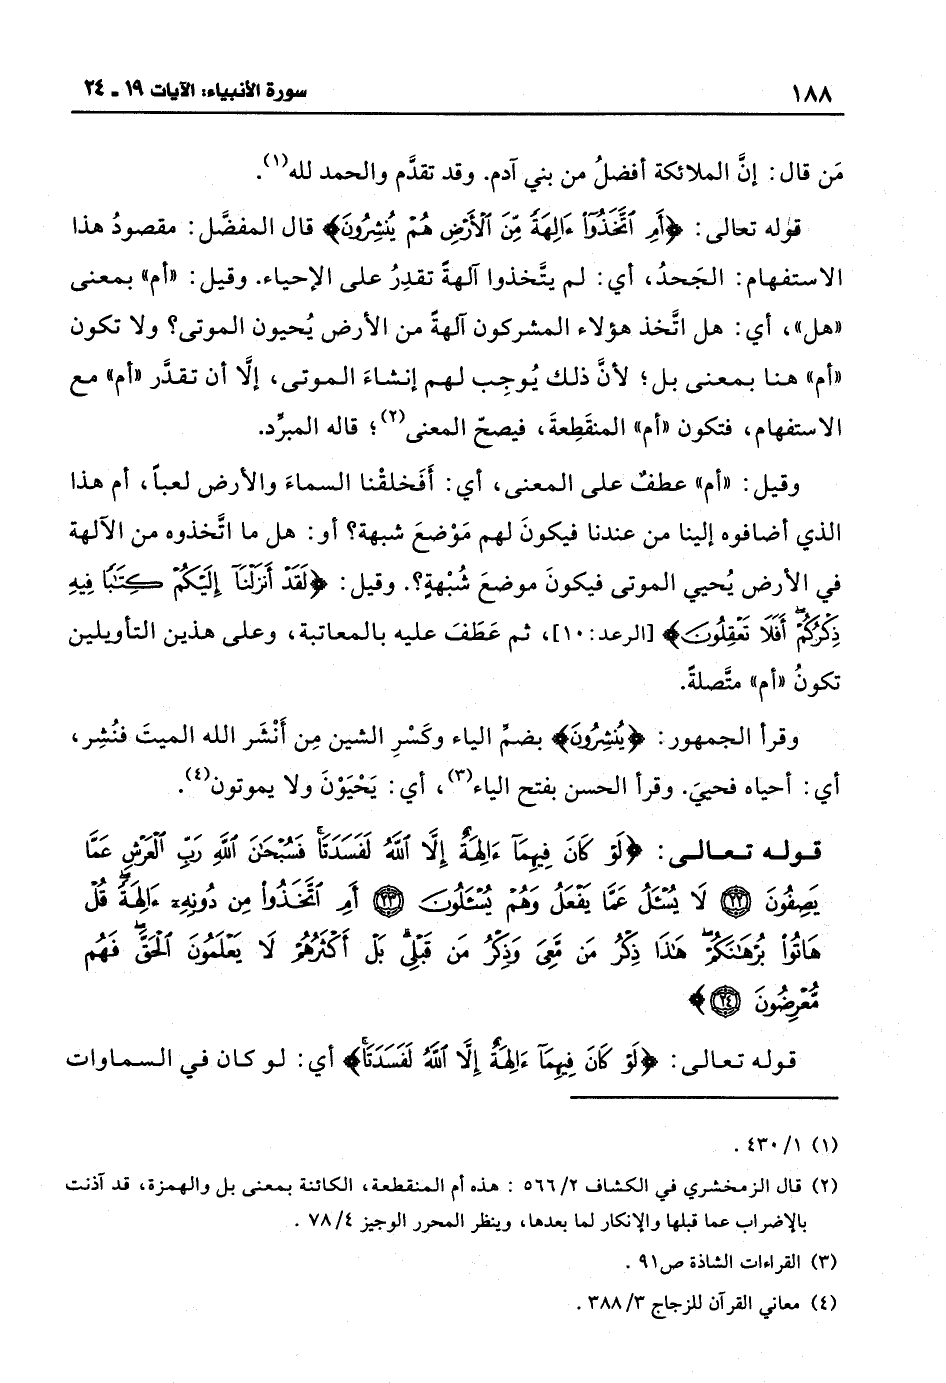 ١٨٨ سورة الأنبياء: الآيات ١٩ ـ ٢٤
مَن قال: إنَّ الملائكة أفضلُ من بني آدم. وقد تقدَّم والحمد لله(١).
قوله تعالى: ﴿أَمِ ٱتَّخَذُوٓا۟ ءَالِهَةً مِّنَ ٱلْأَرْضِ هُمْ يُنشِرُونَ﴾ قال المفضَّل: مقصودُ هذا
الاستفهام: الجَحدُ، أي: لم يتَّخذوا آلهةً تقدِرُ على الإحياء. وقيل: «أم» بمعنى
«هل»، أي: هل اتَّخذ هؤلاء المشركون آلهةً من الأرض يُحيون الموتى؟ ولا تكون
«أم» هنا بمعنى بل؛ لأنَّ ذلك يُوجِب لهم إنشاءَ الموتى، إلَّا أن تقدَّر «أم» مع
الاستفهام، فتكون «أم» المنقَطِعةَ، فيصحّ المعنى(٢)؛ قاله المبرِّد.
وقيل: «أم» عطفٌ على المعنى، أي: أَفَخلقْنا السماءَ والأرض لعباً، أم هذا
الذي أضافوه إلينا من عندنا فيكونَ لهم مَوْضعَ شبهة؟ أو: هل ما اتَّخذوه من الآلهة
في الأرض يُحيي الموتى فيكونَ موضعَ شُبْهةٍ؟. وقيل: ﴿لَقَدْ أَنزَلْنَآ إِلَيْكُمْ كِتَٰبًا فِيهِ
ذِكْرُكُمْ ۖ أَفَلَا تَعْقِلُونَ﴾ [الرعد: ١٠]، ثم عَطَفَ عليه بالمعاتبة، وعلى هذين التأويلين
تكونُ «أم» متَّصلةً.
وقرأ الجمهور: ﴿يُنشِرُونَ﴾ بضمِّ الياء وكَسْرِ الشين مِن أَنْشَر الله الميتَ فنُشِر،
أي: أحياه فحييَ. وقرأ الحسن بفتح الياء(٣)، أي: يَحْيَوْنَ ولا يموتون(٤).
قوله تعالى: ﴿لَوْ كَانَ فِيهِمَآ ءَالِهَةٌ إِلَّا ٱللَّهُ لَفَسَدَتَا ۚ فَسُبْحَٰنَ ٱللَّهِ رَبِّ ٱلْعَرْشِ عَمَّا
يَصِفُونَ ٢٢ لَا يُسْـَٔلُ عَمَّا يَفْعَلُ وَهُمْ يُسْـَٔلُونَ ٢٣ أَمِ ٱتَّخَذُوا۟ مِن دُونِهِۦٓ ءَالِهَةً ۖ قُلْ
هَاتُوا۟ بُرْهَٰنَكُمْ ۖ هَٰذَا ذِكْرُ مَن مَّعِىَ وَذِكْرُ مَن قَبْلِى ۗ بَلْ أَكْثَرُهُمْ لَا يَعْلَمُونَ ٱلْحَقَّ ۖ فَهُم
مُّعْرِضُونَ ٢٤﴾
قوله تعالى: ﴿لَوْ كَانَ فِيهِمَآ ءَالِهَةٌ إِلَّا ٱللَّهُ لَفَسَدَتَا ۚ﴾ أي: لو كان في السماوات
(١) ١/ ٤٣٠ .
(٢) قال الزمخشري في الكشاف ٢/ ٥٦٦ : هذه أم المنقطعة، الكائنة بمعنى بل والهمزة، قد آذنت
بالإضراب عما قبلها والإنكار لما بعدها، وينظر المحرر الوجيز ٤/ ٧٨ .
(٣) القراءات الشاذة ص٩١ .
(٤) معاني القرآن للزجاج ٣/ ٣٨٨ .